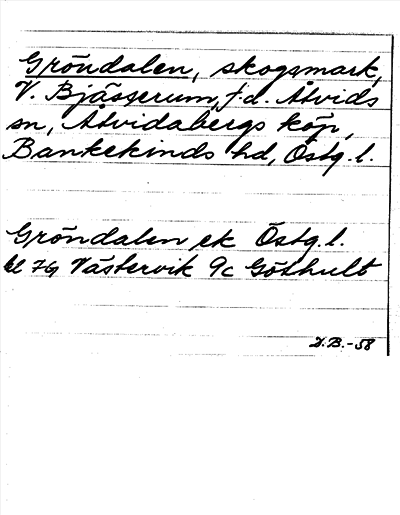 Gröndalen, skogsmark,
V. Bjässerum, f.d. Åtvids
sn, Åtvidabergs köp,
Bankekinds hd, Östg.l.
Gröndalen ek Östg.l.
bl 7G Västervik 9c Göthult
D.B.-58